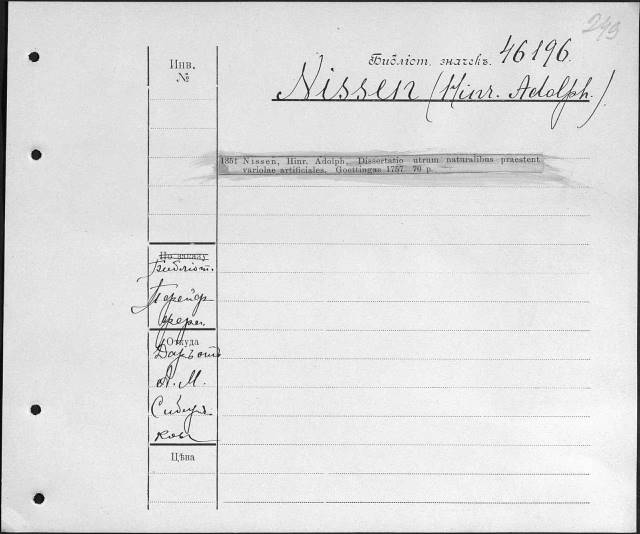 249
Инв.
№
Библіот. значекъ. 46196.
Nissen (Hinr. Adolph.)
1351 Nissen, Hinr. Adolph, Dissertatio utrum naturalibus praestent
variolae artificiales. Goettingae 1757 70 p.
По заказу
Библіот.
Откуда
Даръ отъ
А. М.
Сибиря
кова
Цѣна